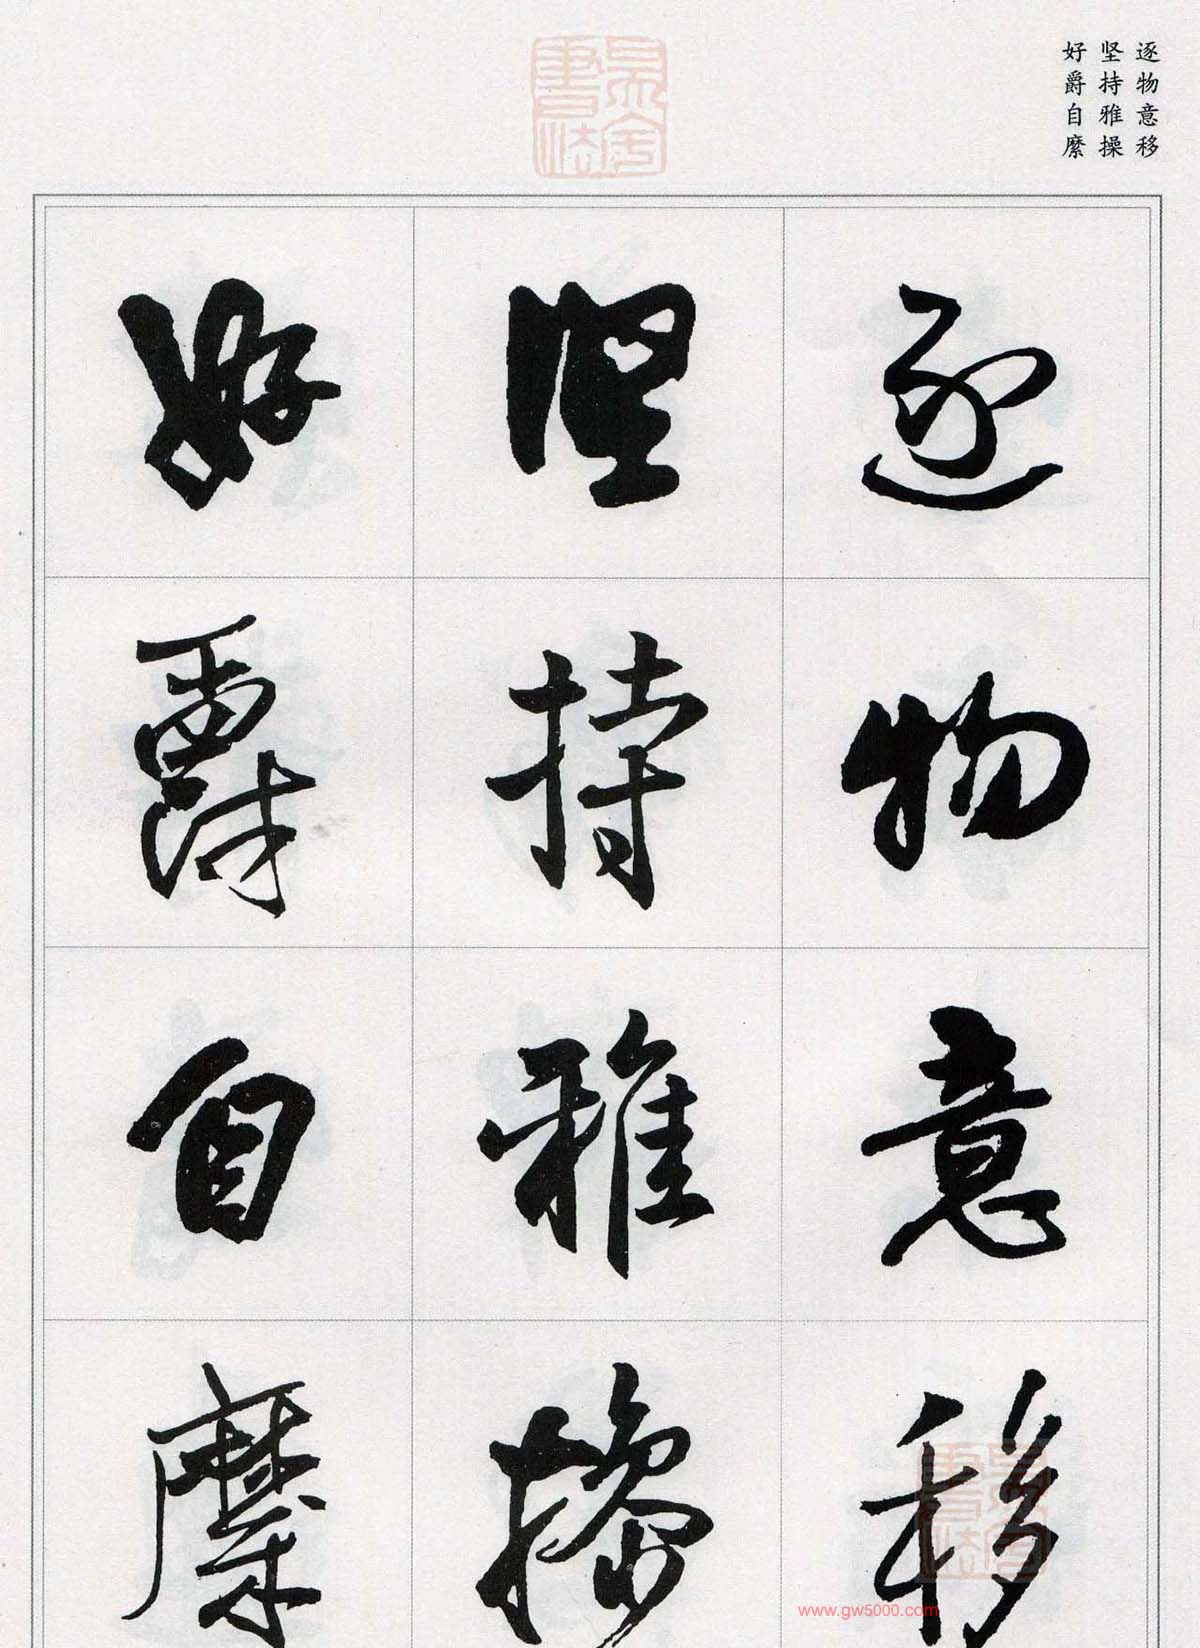 逐物意移
坚持雅操
好爵自縻
逐物意移
坚持雅操
好爵自縻
www.gw5000.com